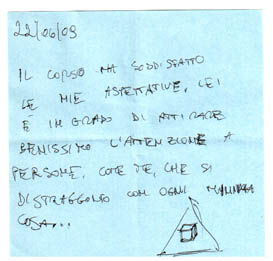 22/06/09
IL CORSO HA SODDISFATTO
LE MIE ASPETTATIVE, LEI
È IN GRADO DI ATTIRARE
BENISSIMO L'ATTENZIONE A
PERSONE, COME ME, CHE SI
DISTRAGGONO CON OGNI MINIMA
COSA...